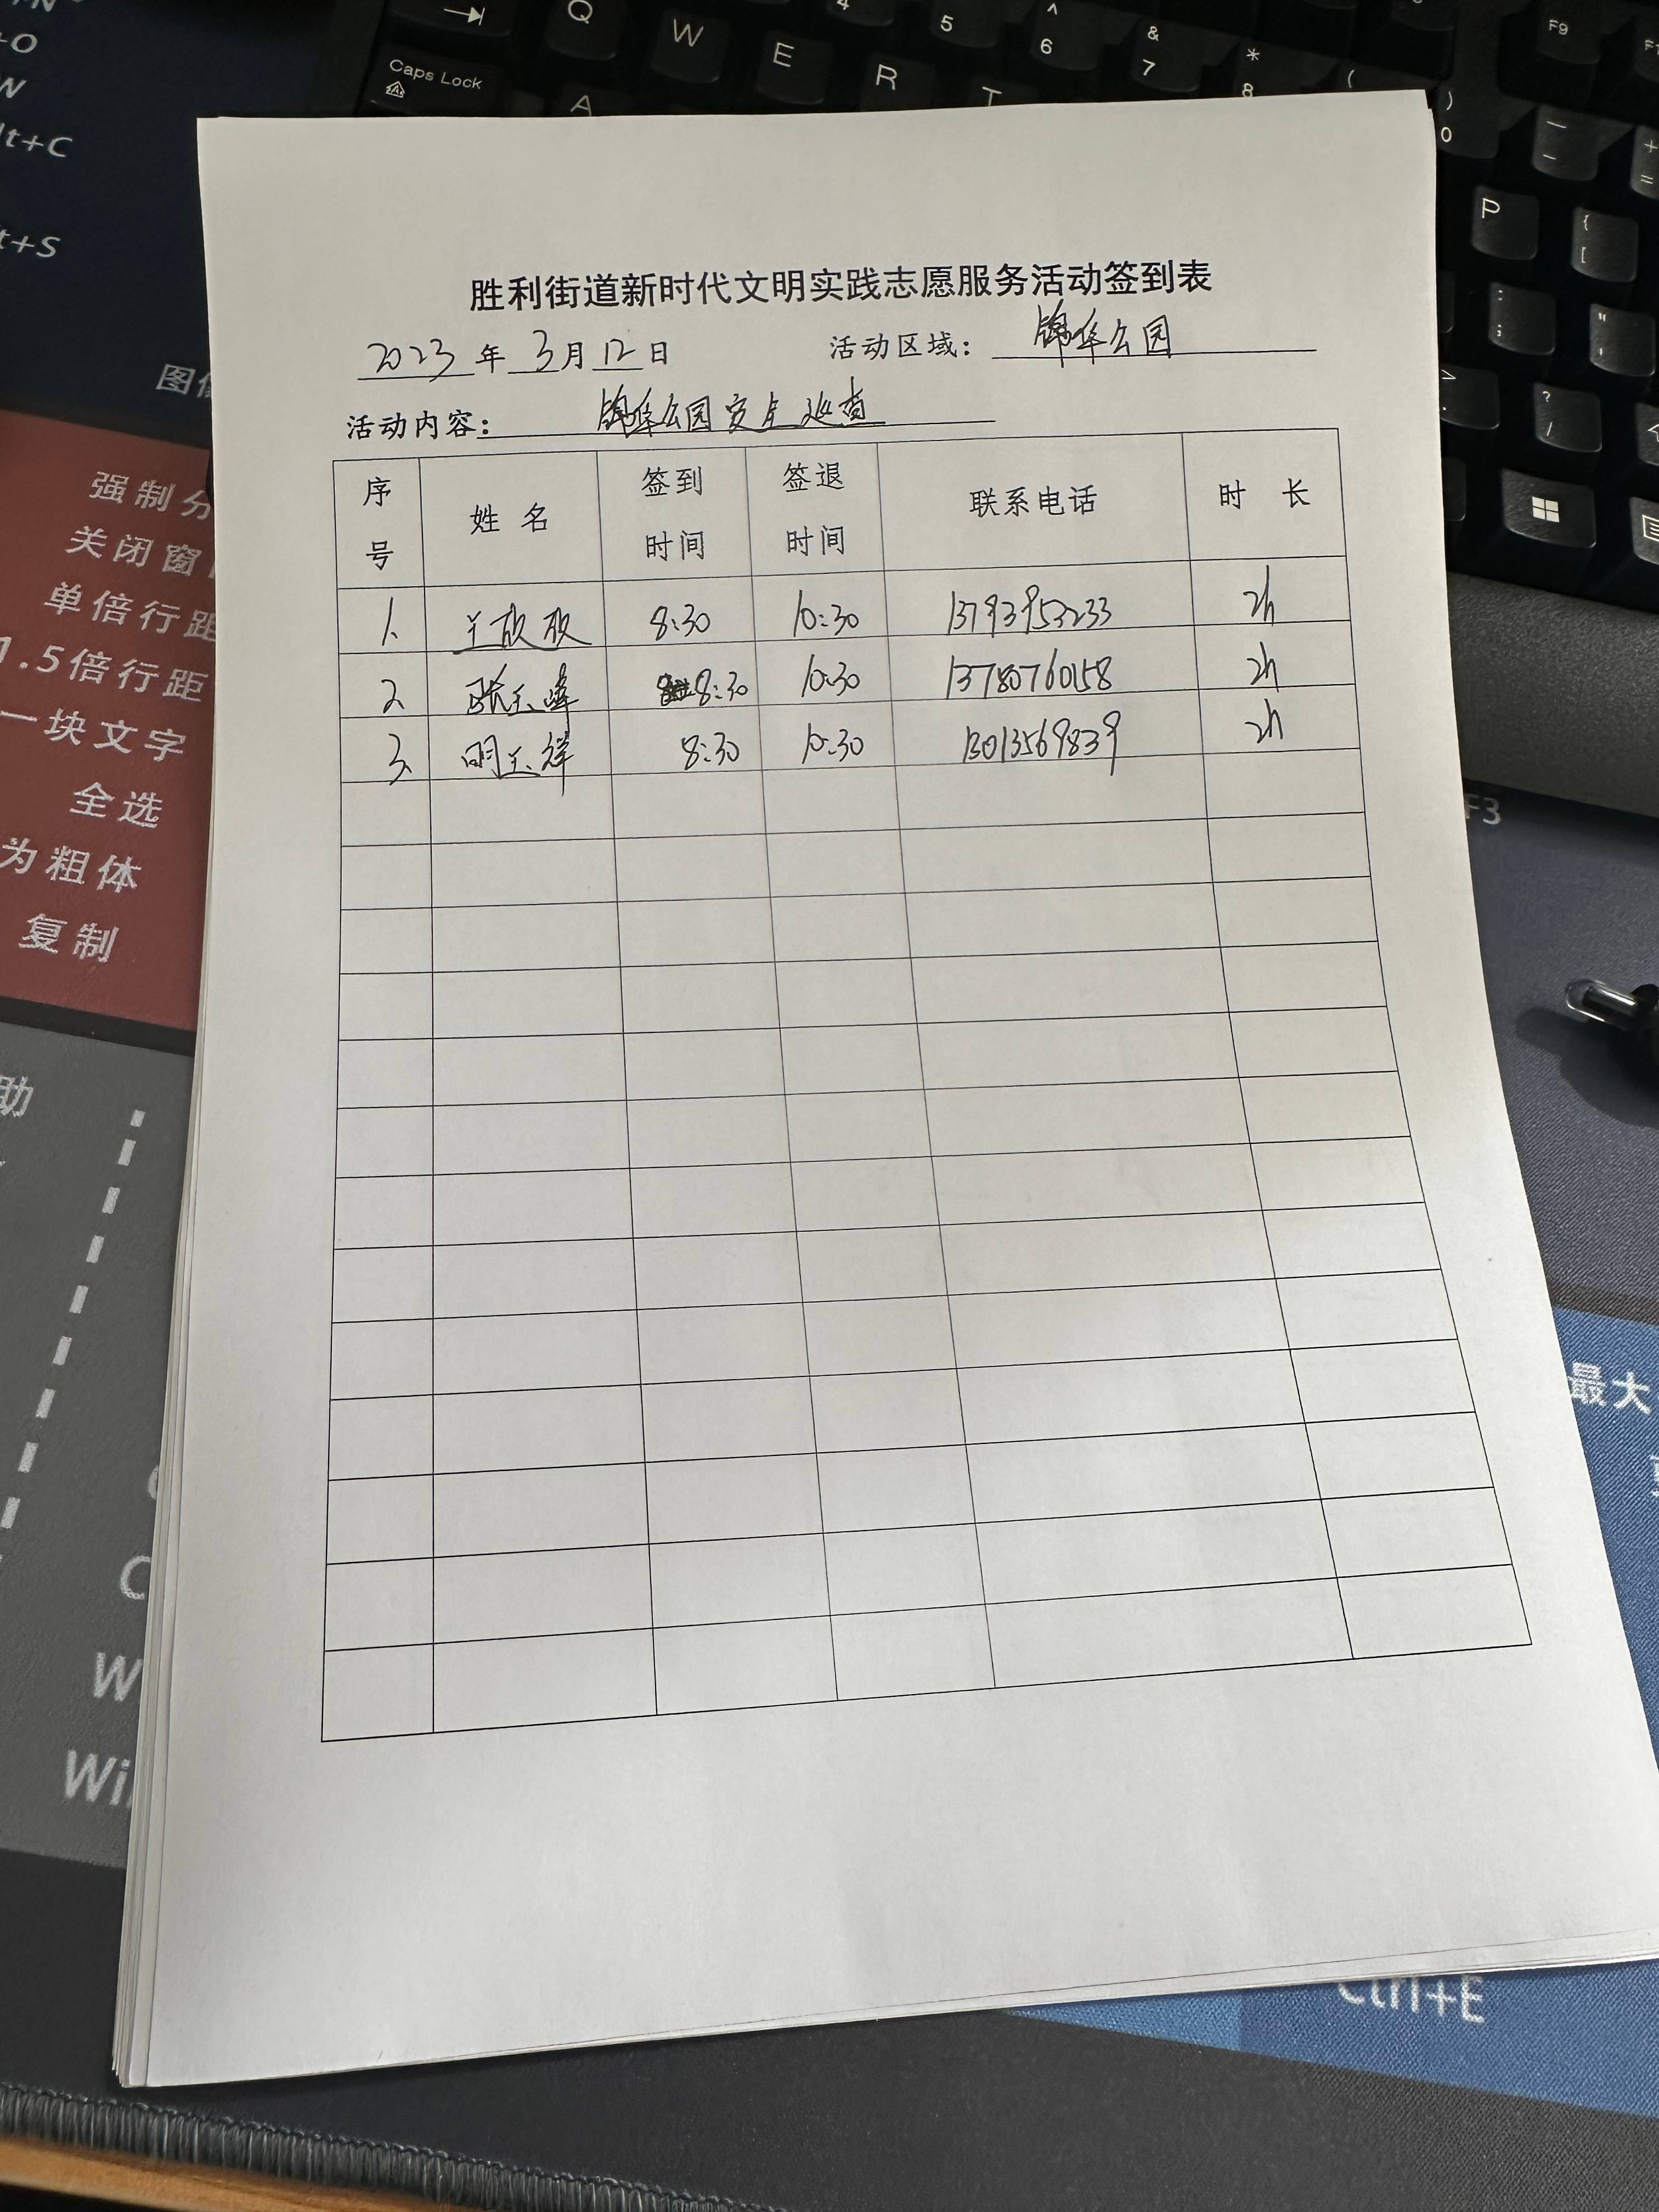 胜利街道新时代文明实践志愿服务活动签到表
2023年3月12日 活动区域：锦华公园
活动内容：锦华公园安全巡查
序号 姓名 签到时间 签退时间 联系电话 时长
1. 8:30 10:30 13793953233 2h
2. 张玉峰 8:30 10:30 13780760158 2h
3. 明玉祥 8:30 10:30 13013569839 2h
Caps Lock
Q
W
E
R
T
A
4
5
^
6
&
7
*
8
(
)
0
P
{
[
F9
+
=
:
;
"
'
>
?
/
+O
W
lt+C
t+S
强制分
关闭窗
单倍行距
1.5倍行距
一块文字
全选
为粗体
复制
助
F3
最大
W
Wi
Ctrl+E